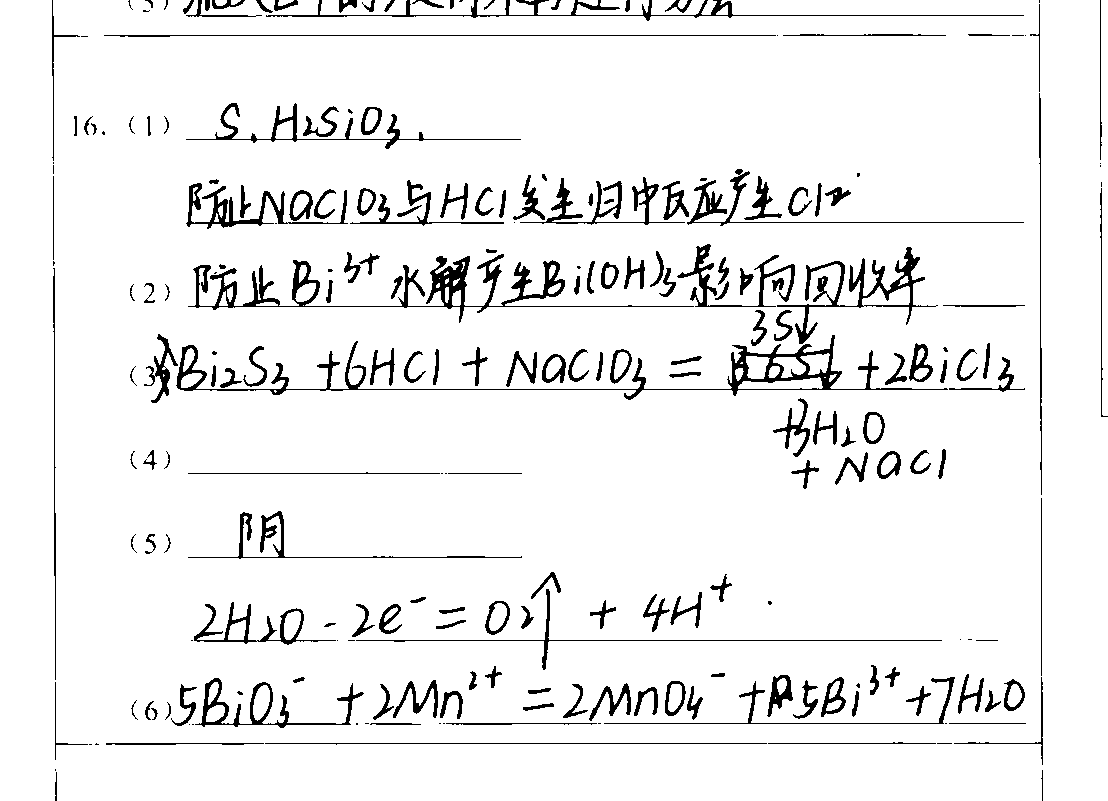 16.（1） S、H₂SiO₃.
防止NaClO₃与HCl发生归中反应产生Cl₂
（2） 防止Bi³⁺水解产生Bi(OH)₃影响回收率
3S↓
（3） Bi₂S₃ + 6HCl + NaClO₃ = + 2BiCl₃
+3H₂O
+ NaCl
（4）
（5） 阴
2H₂O - 2e⁻ = O₂↑ + 4H⁺
（6） 5BiO₃⁻ + 2Mn²⁺ = 2MnO₄⁻ + 5Bi³⁺ + 7H₂O